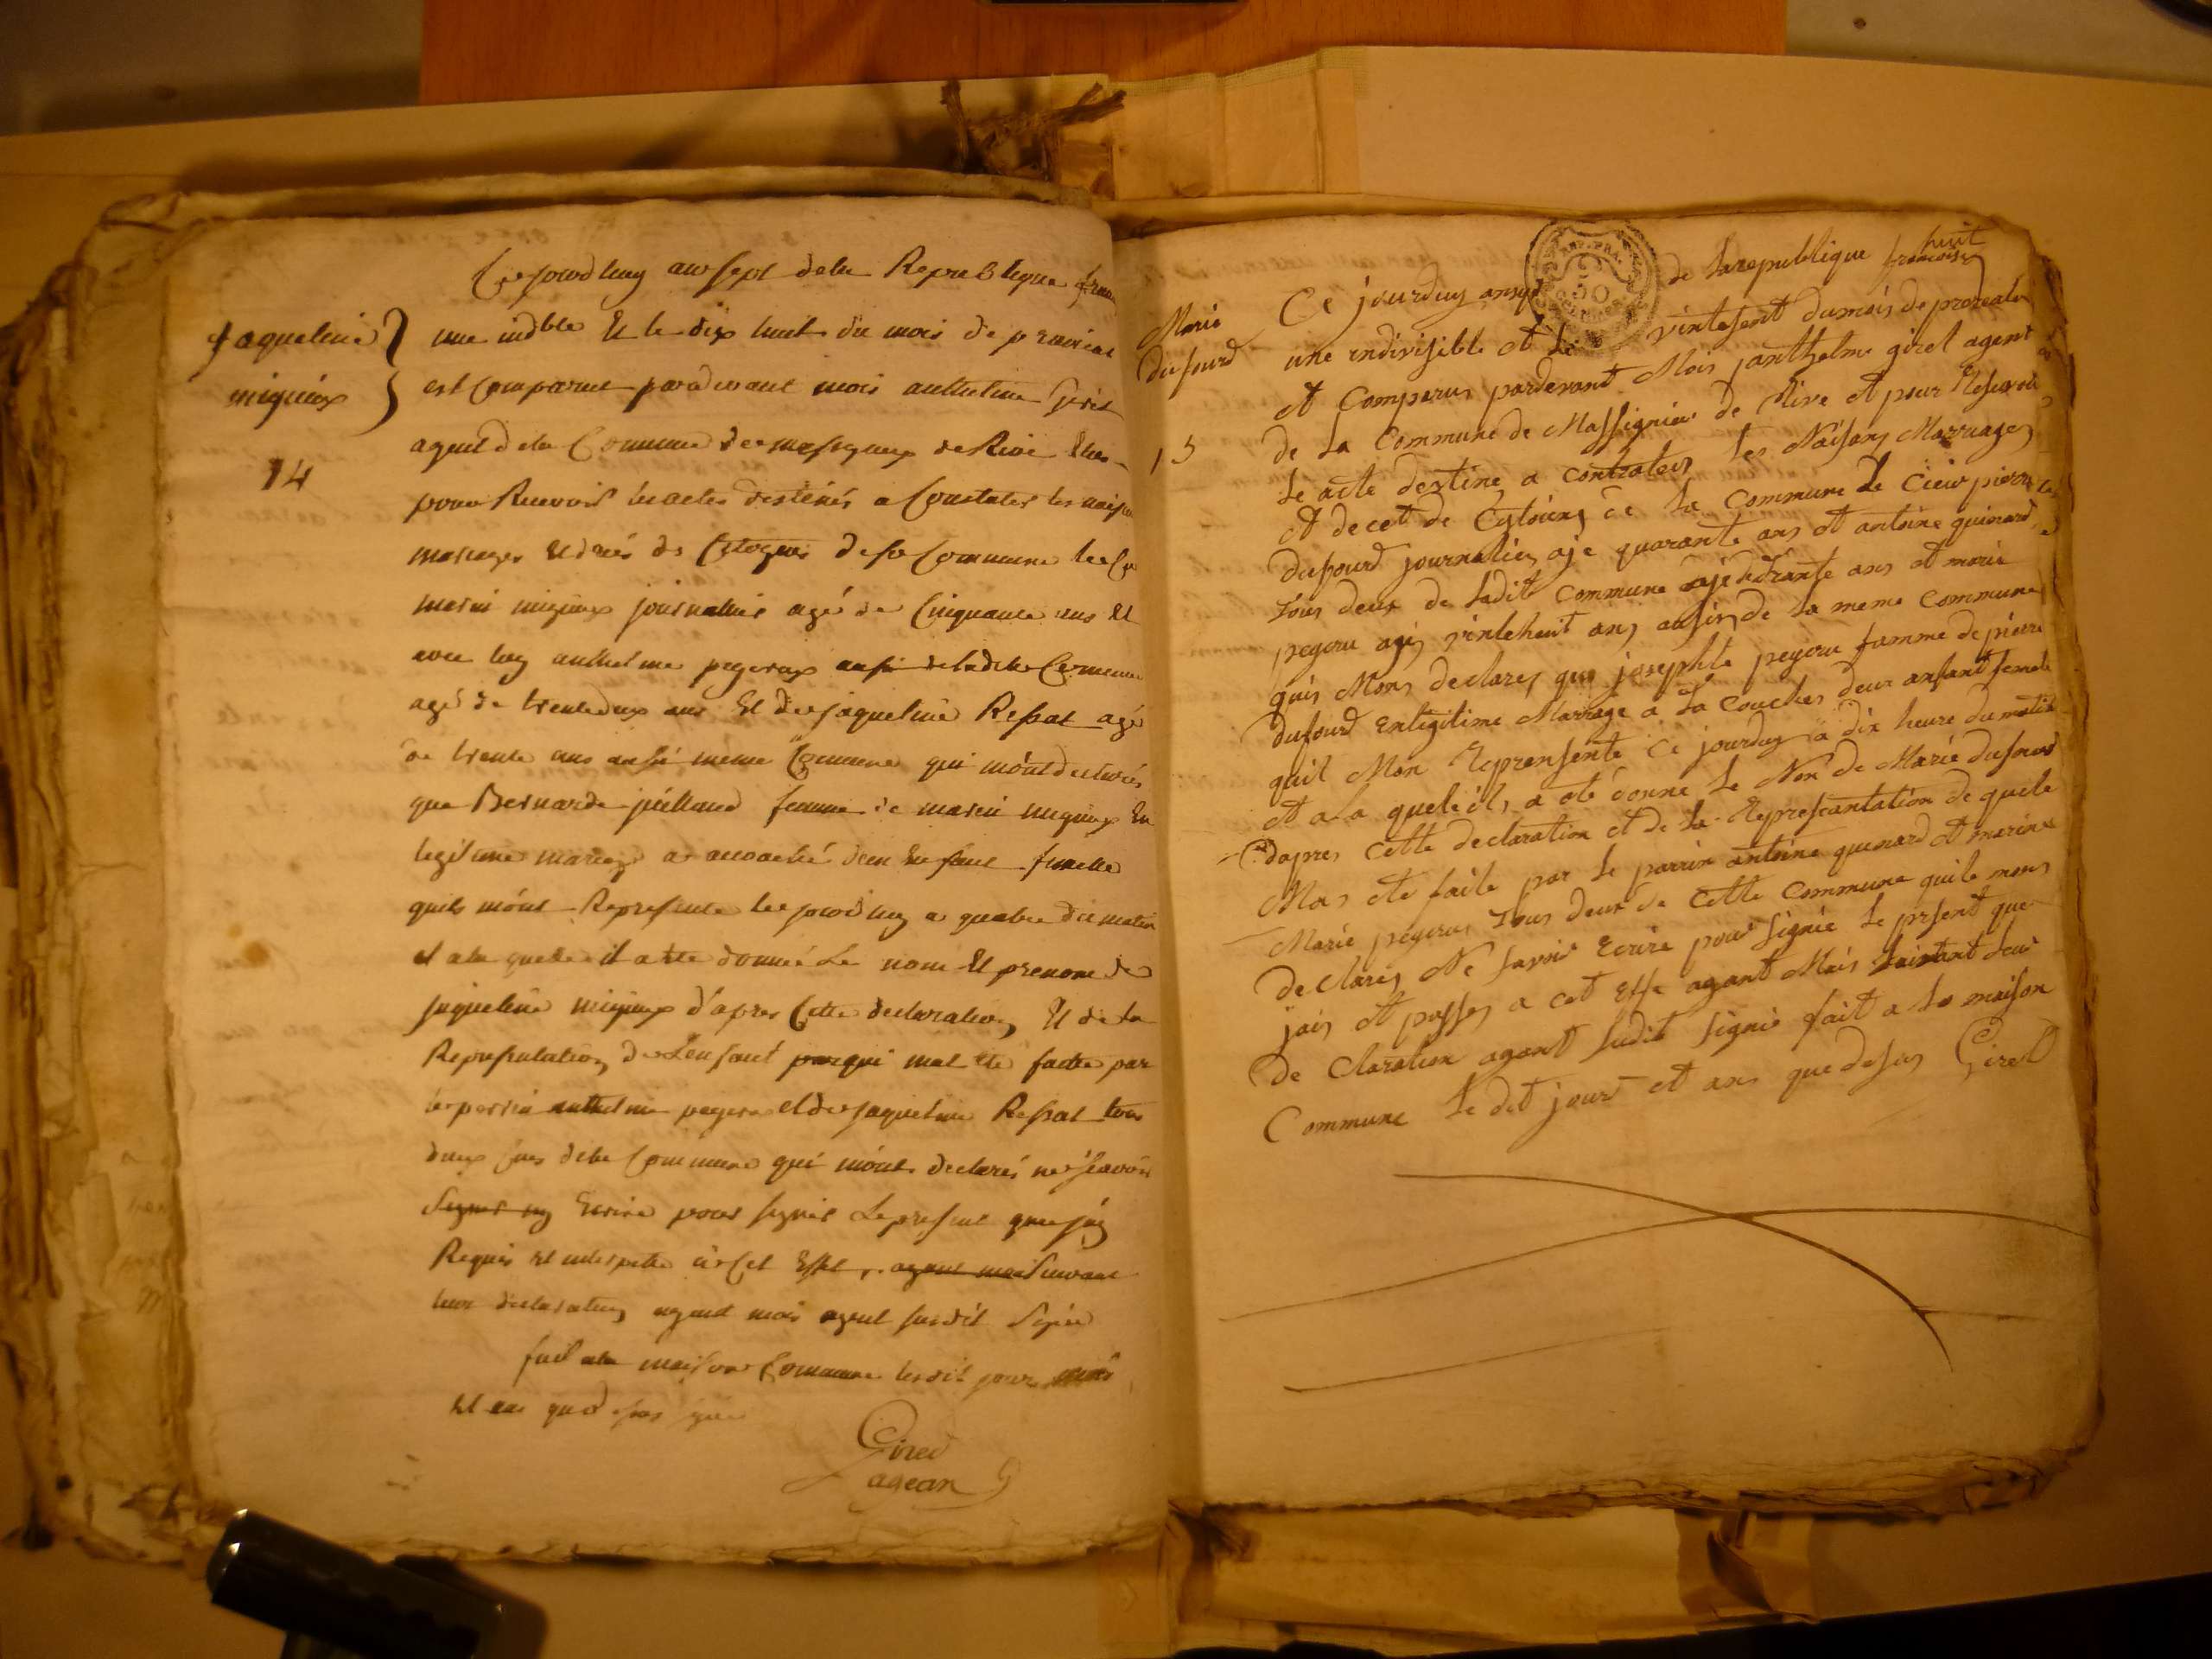 Ce jourd huy an sept dela Republique fran
Jaqueline
migniex
14
une indble Et le dix huit du mois de prairial
est Comparut pardevant mois anthelme Girel
agent dela Commune de massignieux de Rive Elue
pour Recevoir les actes destinés a Constater les naiss
mariages Et decés de Citoyens de sa Commune le Cn
marin migniex journallier agé de Cinquante ans Et
avec luy anthelme pegeroux aussi deladitte Commune
agé de trentedeux ans Et de jaqueline Ressat agé
de trente ans aussi meme Commune qui m'ont declarés
que Bernarde juilland femme de marin migniex En
legitime mariage a accouché d'un Enfant femelle
quils m'ont Represente le jourd huy a quatre du matin
et ala quelle il a ete donné Le nom Et prenom de
jaqueline migniex d'apres Cette declaration Et de la
Represantation de L'enfant qui mat ete faitte par
le parrin anthelme pegeroux et de jaqueline Ressat tous
deux de la Commune qui m'ont declarés ne scavoir
Signer ny Ecrire pour signer Le present que jay
Requis Et interpelle a Cet Effet, agant mois suivant
leur declaration agant mois agent susdit Signé
fait ala maison Commune lesdit jour mois
Et an que desus
Girel
agean
huit
Ce jourduy ansept de la republique francoise
Marie
dufourd
15
une indivisible et le vintesent dumois de prereal
et Comparus pardevant Mois janthelme girel agent
de la Commune de Massignieu de Rive et pour Resevoir
Le acte destine a contrater les Naisans Marruages
et decet de Cytoiens de la Commune Le Cieiu pierre
dufourd journalier aje quarante ans et antoine quinard
tous deux de ladit Commune aje detrante ans et marie
pegeru agé vintehuit ans ausi de la meme Commune
quis Mons declares que josephte peyeru famme de piere
dufourd Enlegitime Marrage a la Couches deux anfant femele
quil Mon Reprensente Ce jourduy a dix heure du matin
et ala quele il a ete donne Le Non de Marie dufourd
dapres Cette declaration et de la Represcantation de quele
Mas ete faite par le parrin antoine quenard et marine
Marie pegerus tous deux de Cette Commune quile mons
declares Ne savoir Ecrire pour signie Le present que
jais et passes a cet Effe agant Mais suivant leur
de Claration agant sudit signié fait a la maison
Commune Le dit jour et ans que desus Girel